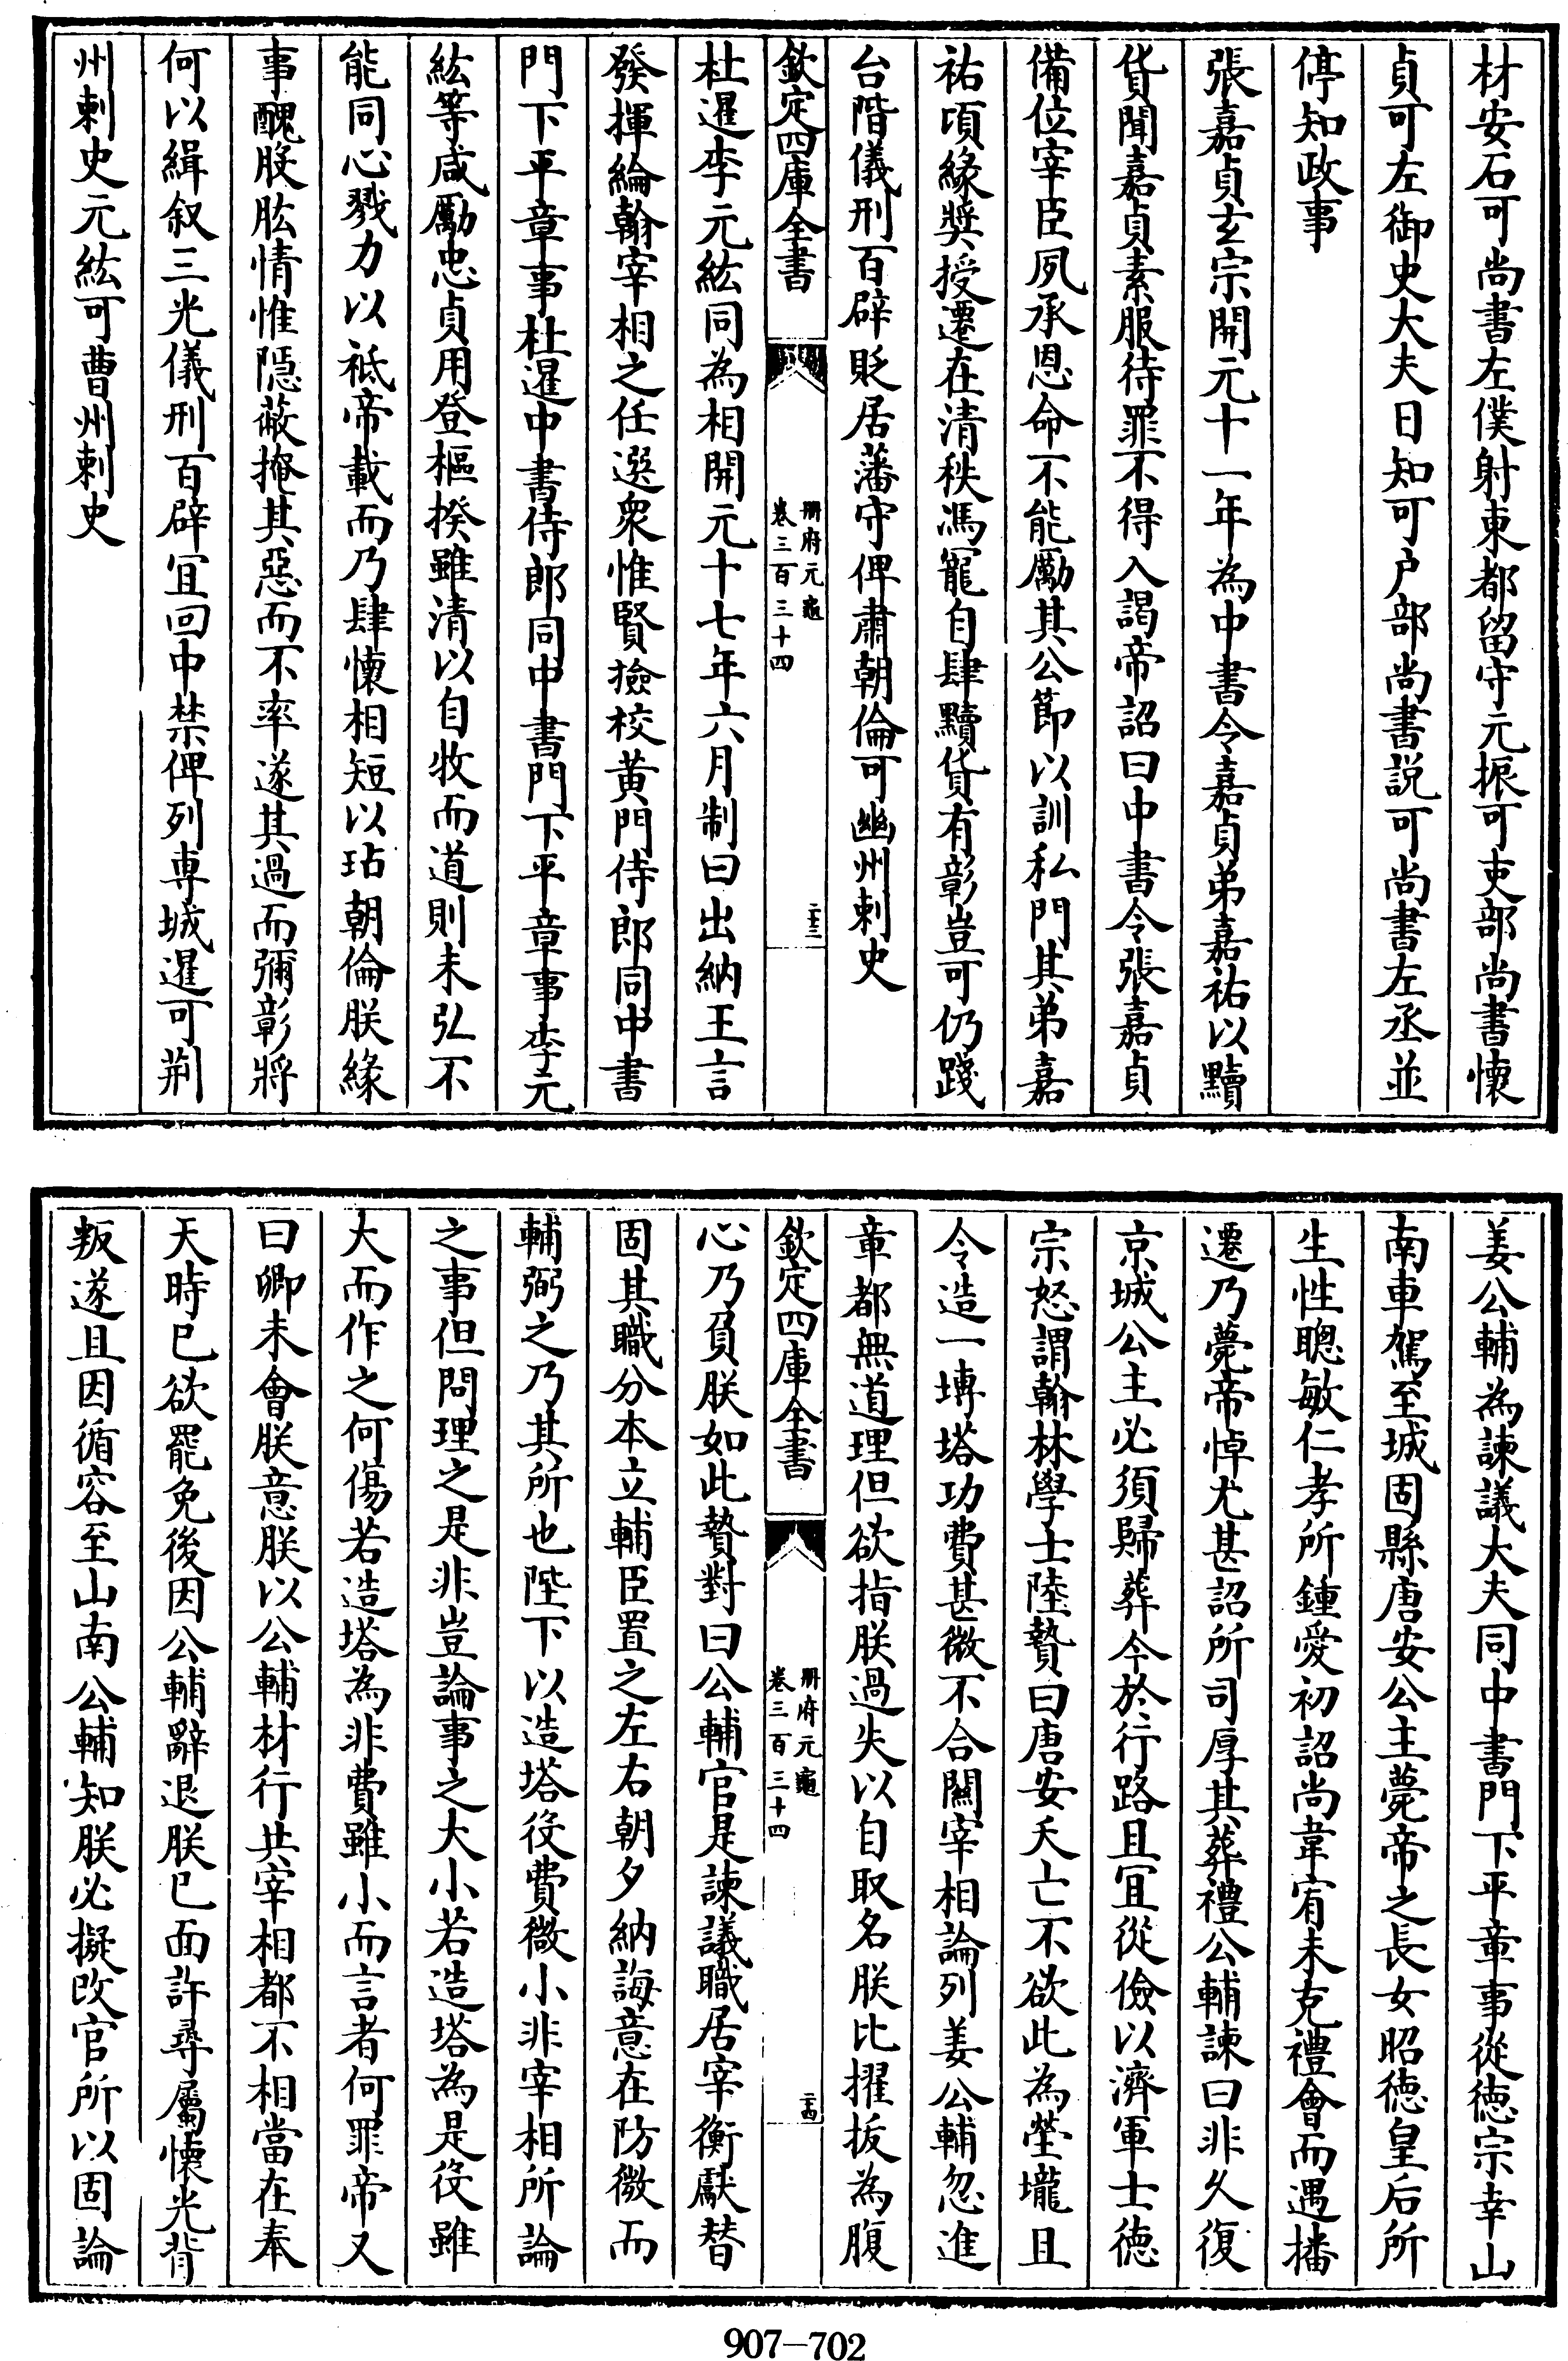 材安石可尚書左僕射東都留守元振可吏部尚書懷
貞可左御史大夫日知可户部尚書説可尚書左丞並
停知政事
張嘉貞玄宗開元十一年為中書令嘉貞弟嘉祐以黷
貨聞嘉貞素服待罪不得入謁帝詔曰中書令張嘉貞
備位宰臣夙承恩命不能勵其公節以訓私門其弟嘉
祐頃緣奬授遷在清秩馮寵自肆黷貨有彰豈可仍踐
台階儀刑百辟貶居藩守俾肅朝倫可幽州刺史
欽定四庫全書
册府元龜
卷三百三十四
二十三
杜暹李元紘同為相開元十七年六月制曰出納王言
發揮綸翰宰相之任選衆惟賢撿校黄門侍郎同中書
門下平章事杜暹中書侍郎同中書門下平章事李元
紘等咸勵忠貞用登樞揆雖清以自牧而道則未弘不
能同心戮力以祗帝載而乃肆懷相短以玷朝倫朕緣
事醜股肱情惟隠蔽掩其惡而不率遂其過而彌彰將
何以緝叙三光儀刑百辟宜回中禁俾列専城暹可荆
州刺史元紘可曹州刺史
姜公輔為諫議大夫同中書門下平章事從徳宗幸山
南車駕至城固縣唐安公主薨帝之長女昭徳皇后所
生性聰敏仁孝所鍾愛初詔尚韋宥未克禮會而遇播
遷乃薨帝悼尤甚詔所司厚其葬禮公輔諫曰非久復
京城公主必須歸葬今於行路且宜從儉以濟軍士徳
宗怒謂翰林學士陸贄曰唐安夭亡不欲此為塋壠且
令造一塼塔功費甚微不合關宰相論列姜公輔忽進
章都無道理但欲指朕過失以自取名朕比擢拔為腹
欽定四庫全書
册府元龜
卷三百三十四
二十四
心乃負朕如此贄對曰公輔官是諫議職居宰衡獻替
固其職分本立輔臣置之左右朝夕納誨意在防微而
輔弼之乃其所也陛下以造塔役費微小非宰相所論
之事但問理之是非豈論事之大小若造塔為是役雖
大而作之何傷若造塔為非費雖小而言者何罪帝又
曰卿未會朕意朕以公輔材行共宰相都不相當在奉
天時已欲罷免後因公輔辭退朕已面許尋屬懷光背
叛遂且因循容至山南公輔知朕必擬改官所以固論
907-702